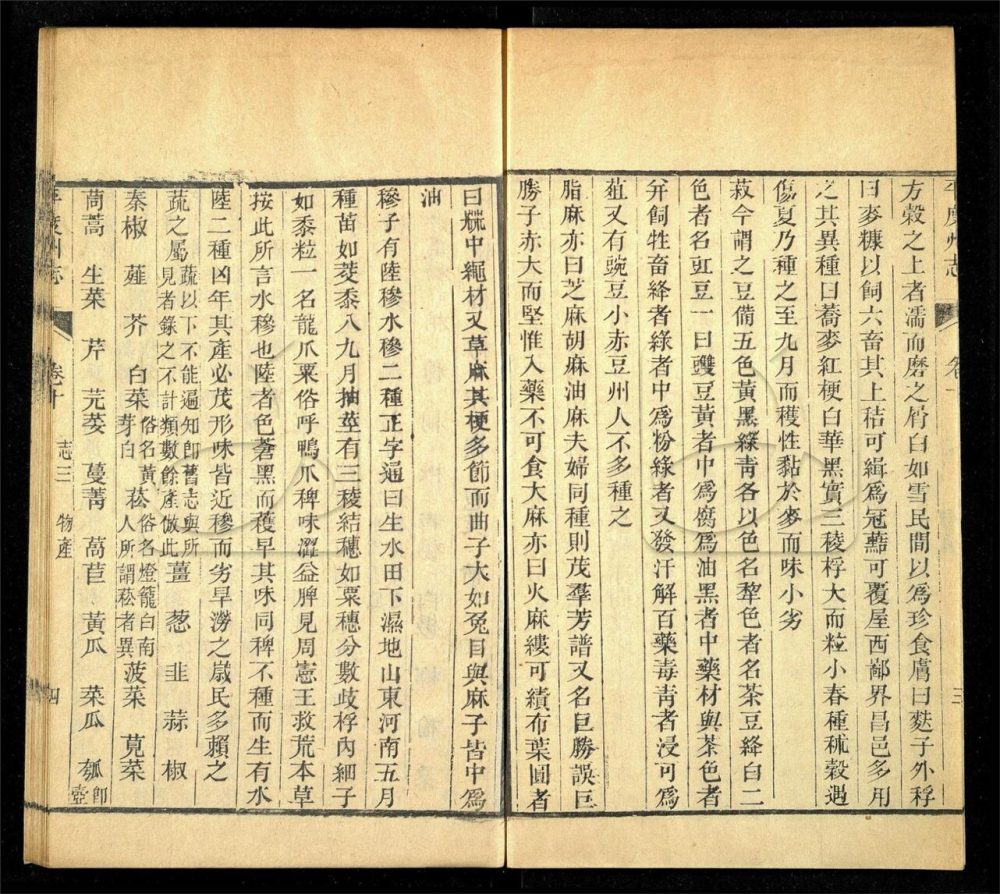 平度州志 卷十 三
方穀之上者濡而磨之屑白如雪民間以爲珍食膚曰麩子外稃
曰麥糠以飼六畜其上秸可緝爲冠藳可覆屋西鄙界昌邑多用
之其異種曰蕎麥紅梗白華黑實三稜稃大而粒小春種秫穀遇
傷夏乃種之至九月而穫性黏於麥而味小劣
菽今謂之豆備五色黃黑綠青各以色名犂色者名茶豆絳白二
色者名豇豆一曰䜶豆黃者中爲腐爲油黑者中藥材與茶色者
幷飼牲畜絳者綠者中爲粉綠者又發汗解百藥毒青者浸可爲
菹又有豌豆小赤豆州人不多種之
脂麻亦曰芝麻胡麻油麻夫婦同種則茂羣芳譜又名巨勝誤巨
勝子赤大而堅惟入藥不可食大麻亦曰火麻縷可績布葉圓者
曰䔛中繩材又草麻其梗多節而曲子大如兔目與麻子皆中爲
油
穇子有陸穇水穇二種正字通曰生水田下濕地山東河南五月
種苗如茭黍八九月抽莖有三稜結穗如粟穗分數歧稃內細子
如黍粒一名龍爪粟俗呼鴨爪稗味澀益脾見周憲王救荒本草
按此所言水穇也陸者色蒼黑而穫早其味同稗不種而生有水
陸二種凶年其產必茂形味皆近穇而劣旱澇之嵗民多賴之
蔬之屬蔬以下不能遍知卽舊志與所見者錄之不計類數餘產倣此 薑 葱 韭 蒜 椒
秦椒 薤 芥 白菜俗名黃芽白 菘俗名燈籠白南人所謂菘者異 菠菜 莧菜
茼蒿 生菜 芹 芫荽 蔓菁 萵苣 黃瓜 菜瓜 瓠卽壺
平度州志 卷十 志三 物產 四